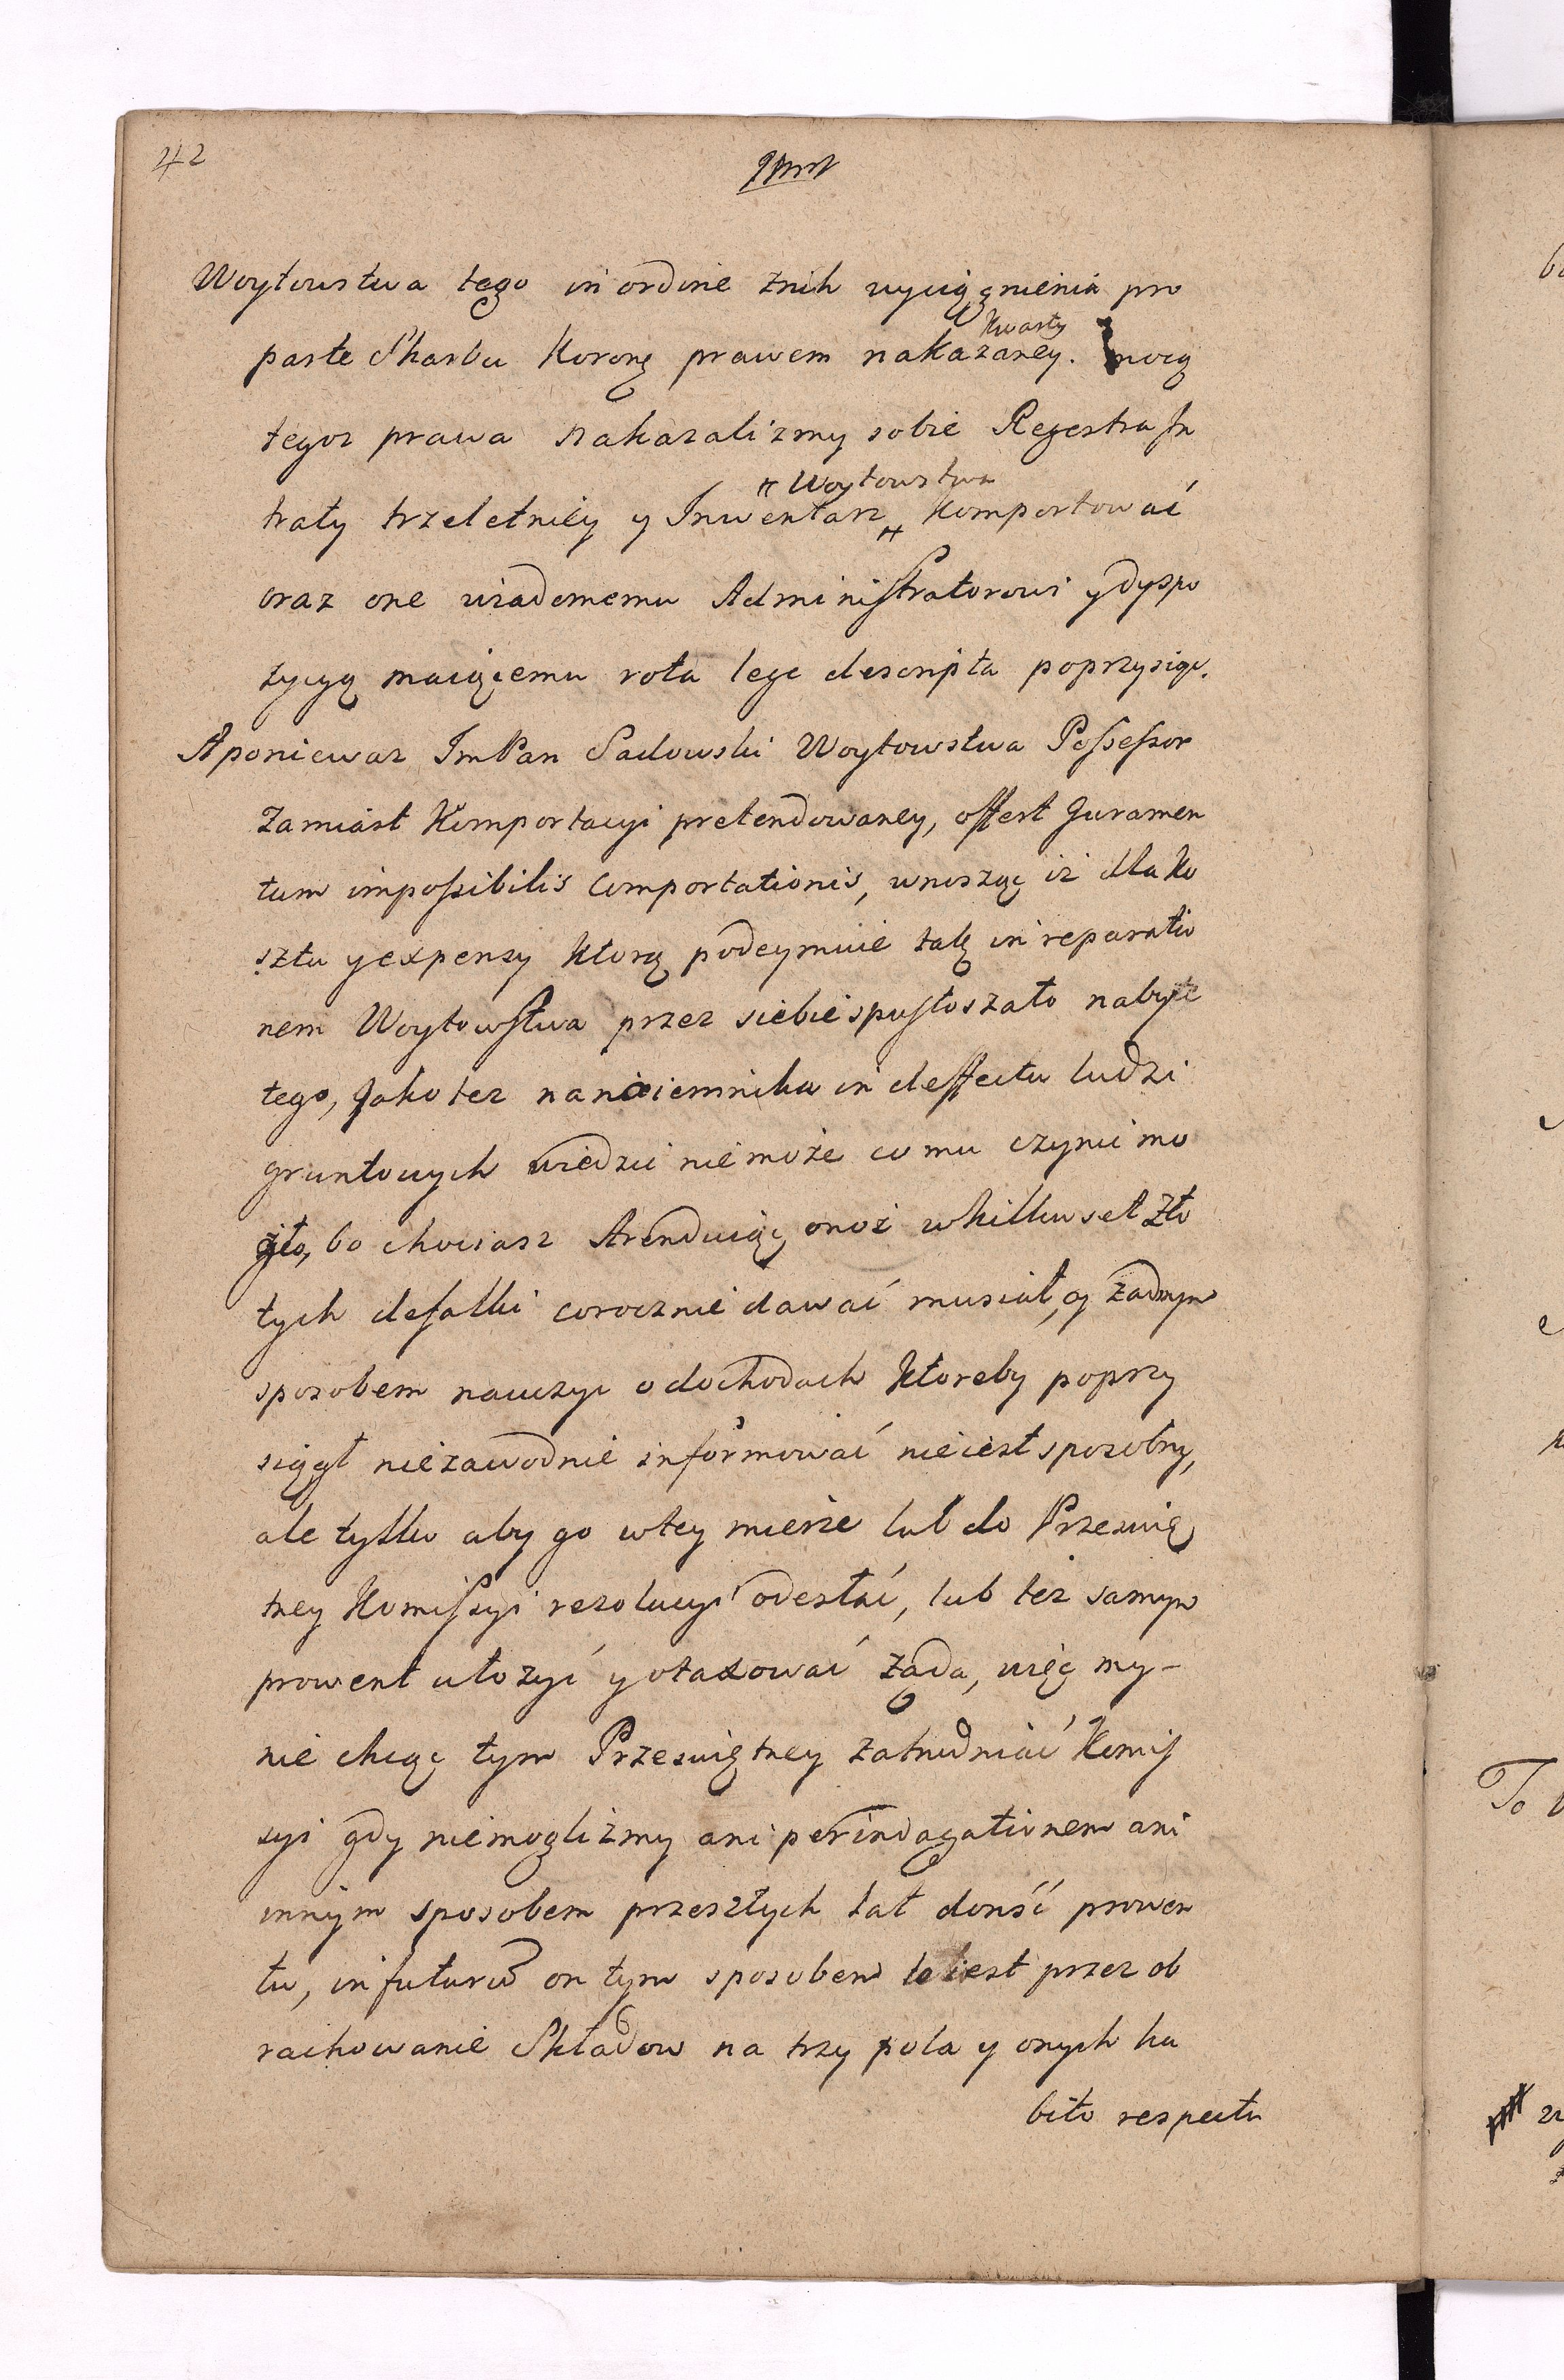 42
Woytowstwa tego in ordine znich wyciągnienia pro
Kwarty
parte Skarbu Koroñ prawem nakazaney. mocą
tegoz prawa nakazalizmy sobie Regestra In
Woytowstwa
traty trzeletniey y Inwentarz Komportować
oraz one wiadomemu Administratorowi y dyspo
zycyą maiącemu rota lege descripta poprzysiąc.
A poniewaz ImPan Sadowski Woytowstwa Possessor
Zamiast Komportacyi pretendowaney, offert Juramen
tum impossibilis Comportationis, wnosząc iż dla ko
sztu y expensy ktorą podeymuie tak in reparatio
nem Woytowstwa przez siebie spustoszało nabyte
tego, Jako tez na naiemnika in deffectu ludzi
gruntowych wiedzić nie może co mu czynić mo
gło, bo chociasz Arenduiąc onoż w kilku set Zło
tych defalki corocznie dawać musiał, y żadnym
sposobem nauczyć o dochodach ktoreby poprzy
siągł niezawodnie informować nieiest sposobny,
ale tylko aby go wtey mierze lub do Przeswię
tney Komissyi rezolucyi odesłać, lub też samym
prowent ułozyć y otaxować żąda, więc my-
nie chcąc tym Przeswiętney zatrudniać Komis
syi gdy niemoglizmy ani per indagationem ani
innym sposobem przeszłych lat donść prowen
tu, in futurum on tym sposobem to iest przez ob
rachowanie Składow na trzy pola y onych ha
bito respectu